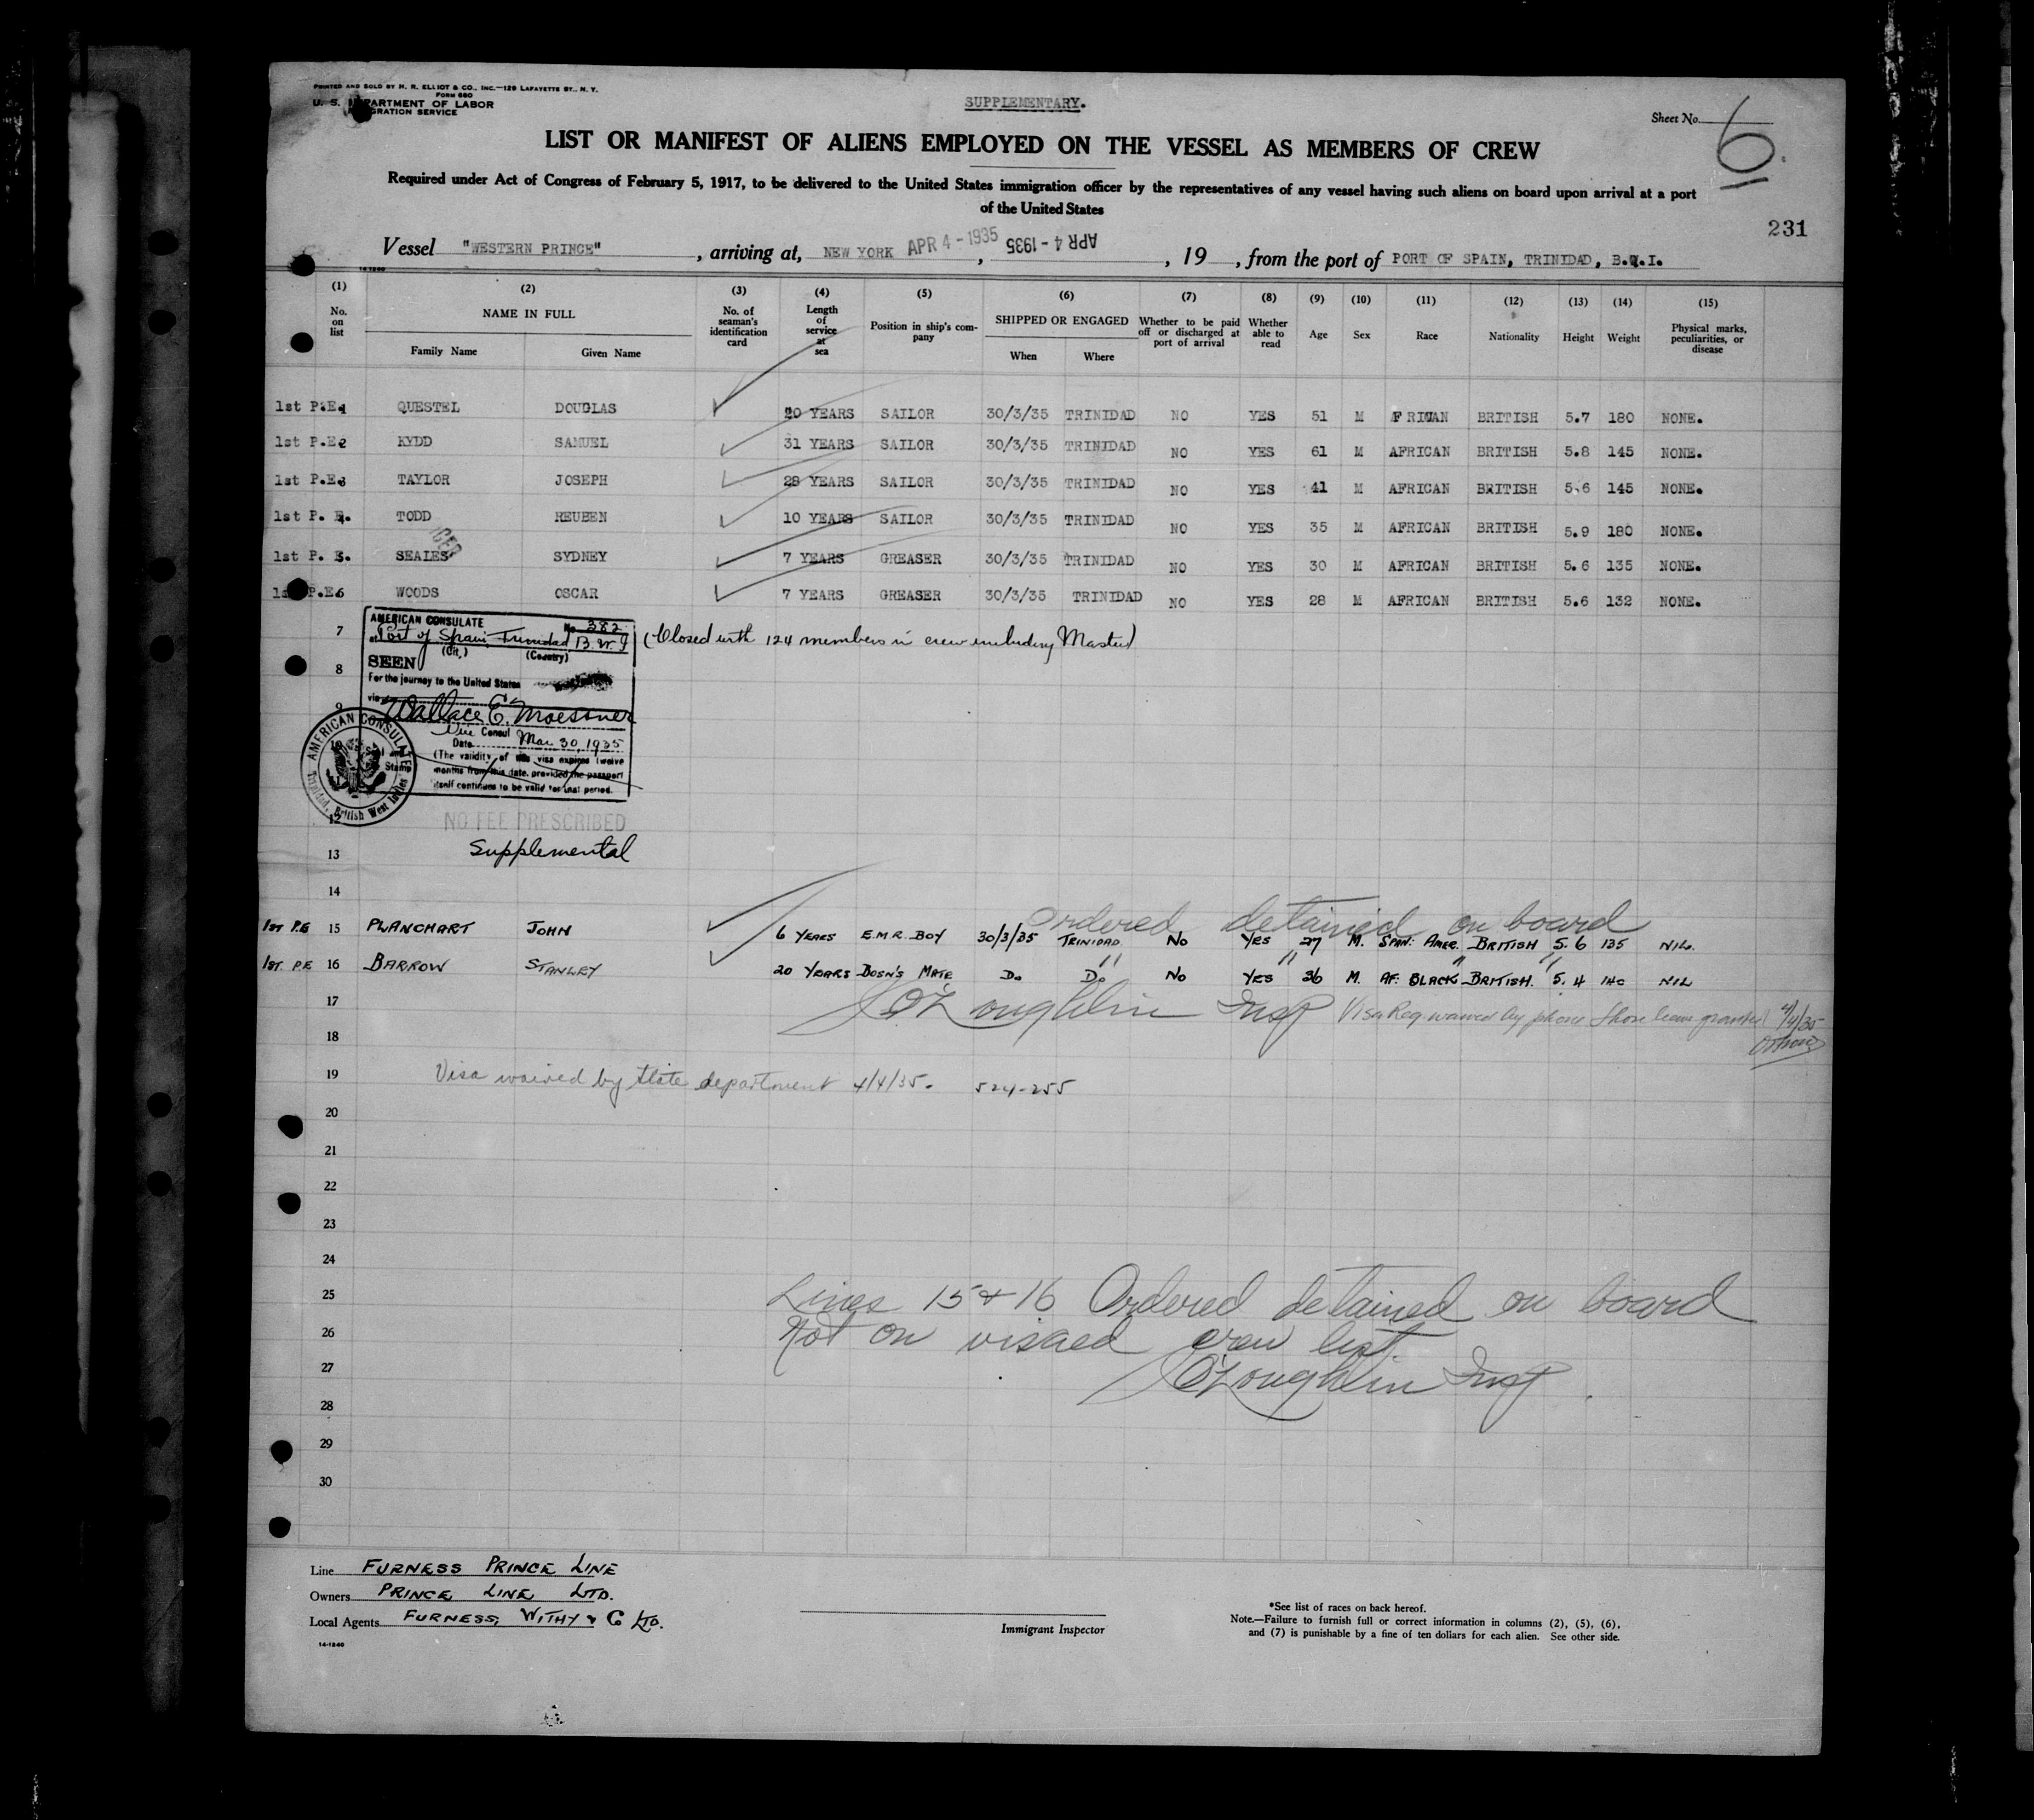 PRINTED AND SOLD BY H. R. ELLIOT & CO., INC.—129 LAFAYETTE ST., N. Y.
FORM 680
U. S. DEPARTMENT OF LABOR
IMMIGRATION SERVICE
SUPPLEMENTARY.
Sheet No. 6
LIST OR MANIFEST OF ALIENS EMPLOYED ON THE VESSEL AS MEMBERS OF CREW
Required under Act of Congress of February 5, 1917, to be delivered to the United States immigration officer by the representatives of any vessel having such aliens on board upon arrival at a port
of the United States
231
Vessel "WESTERN PRINCE", arriving at, NEW YORK APR 4 - 1935, APR 4 - 1935, 19 , from the port of PORT OF SPAIN, TRINIDAD, B.W.I.
14-1240
(1) (2) (3) (4) (5) (6) (7) (8) (9) (10) (11) (12) (13) (14) (15)
No. on list NAME IN FULL Family Name Given Name No. of seaman's identification card Length of service at sea Position in ship's company SHIPPED OR ENGAGED When Where Whether to be paid off or discharged at port of arrival Whether able to read Age Sex Race Nationality Height Weight Physical marks, peculiarities, or disease
1st P.E. 1 QUESTEL DOUGLAS 20 YEARS SAILOR 30/3/35 TRINIDAD NO YES 51 M F RICAN BRITISH 5.7 180 NONE.
1st P.E. 2 KYDD SAMUEL 31 YEARS SAILOR 30/3/35 TRINIDAD NO YES 61 M AFRICAN BRITISH 5.8 145 NONE.
1st P.E. 3 TAYLOR JOSEPH 28 YEARS SAILOR 30/3/35 TRINIDAD NO YES 41 M AFRICAN BRITISH 5.6 145 NONE.
1st P. E. 4. TODD REUBEN 10 YEARS SAILOR 30/3/35 TRINIDAD NO YES 35 M AFRICAN BRITISH 5.9 180 NONE.
1st P. E. 5. SEALES SYDNEY 7 YEARS GREASER 30/3/35 TRINIDAD NO YES 30 M AFRICAN BRITISH 5.6 135 NONE.
1st P.E. 6 WOODS OSCAR 7 YEARS GREASER 30/3/35 TRINIDAD NO YES 28 M AFRICAN BRITISH 5.6 132 NONE.
AMERICAN CONSULATE
No. 382
7 at Port of Spain Trinidad B.W.I (Closed with 124 members in crew including Master)
(City) (Country)
8 SEEN
For the journey to the United States
9 via
Wallace E. Moessner
Vice Consul
10 Date Mar 30, 1935
(The validity of this visa expires twelve
months from this date, provided the passport
itself continues to be valid for that period.
AMERICAN CONSULATE
Trinidad, British West Indies
12
NO FEE PRESCRIBED
13 Supplemental
14
Ordered detained on board
1ST P.E 15 PLANCHART JOHN 6 YEARS E.M.R. BOY 30/3/35 TRINIDAD No Yes 27 M. SPAN: AMER. BRITISH 5.6 135 NIL.
1ST. P.E 16 BARROW STANLEY 20 YEARS BOSN'S MATE Do Do No Yes 36 M. AF: BLACK BRITISH. 5.4 140 NIL
17 O'Loughlin Insp Visa Req. waived by phone Shore leave granted 4/4/35
18
19 Visa waived by State department 4/4/35. 524-255
20
21
22
23
24
25 Lines 15 & 16 Ordered detained on board
26 Not on visaed crew list.
27 O'Loughlin Insp
28
29
30
Line FURNESS PRINCE LINE
Owners PRINCE LINE LTD.
Local Agents FURNESS, WITHY & Co LTD.
14-1240
Immigrant Inspector
*See list of races on back hereof.
Note.—Failure to furnish full or correct information in columns (2), (5), (6),
and (7) is punishable by a fine of ten dollars for each alien. See other side.